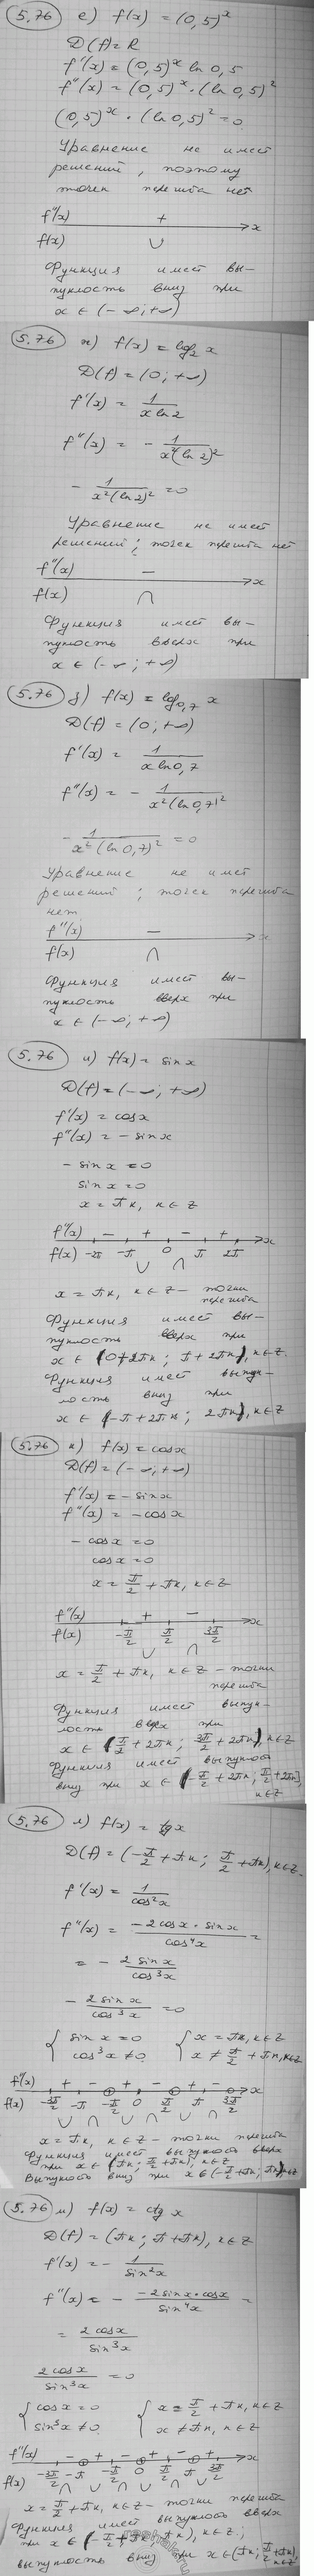 5.76 е) f(x) = (0,5)^x
D(f) = R
f'(x) = (0,5)^x ln 0,5
f''(x) = (0,5)^x · (ln 0,5)^2
(0,5)^x · (ln 0,5)^2 = 0
Уравнение не имеет
решений, поэтому
точек перегиба нет
f''(x) + x
f(x) ∪
Функция имеет вы-
пуклость вниз при
x ∈ (-∞; +∞)
5.76 ж) f(x) = log_2 x
D(f) = (0; +∞)
f'(x) = 1/(x ln 2)
f''(x) = - 1/(x^2 (ln 2)^2)
- 1/(x^2 (ln 2)^2) = 0
Уравнение не имеет
решений; точек перегиба нет
f''(x) - x
f(x) ∩
Функция имеет вы-
пуклость вверх при
x ∈ (-∞; +∞)
5.76 з) f(x) = log_0,7 x
D(f) = (0; +∞)
f'(x) = 1/(x ln 0,7)
f''(x) = - 1/(x^2 (ln 0,7)^2)
- 1/(x^2 (ln 0,7)^2) = 0
Уравнение не имеет
решений; точек перегиба
нет
f''(x) - x
f(x) ∩
Функция имеет вы-
пуклость вверх при
x ∈ (-∞; +∞)
5.76 и) f(x) = sin x
D(f) = (-∞; +∞)
f'(x) = cos x
f''(x) = - sin x
- sin x = 0
sin x = 0
x = πк, к ∈ Z
f''(x) - + - + x
f(x) -2π -π 0 π 2π
∪ ∩
x = πк, к ∈ Z - точки
перегиба
Функция имеет вы-
пуклость вверх при
x ∈ (0+2πк; π+2πк), к ∈ Z.
Функция имеет выпук-
лость вниз при
x ∈ (-π+2πк; 2πк), к ∈ Z
5.76 к) f(x) = cos x
D(f) = (-∞; +∞)
f'(x) = - sin x
f''(x) = - cos x
- cos x = 0
cos x = 0
x = π/2 + πк, к ∈ Z
f''(x) + - x
f(x) -π/2 π/2 3π/2
∪ ∩
x = π/2 + πк, к ∈ Z - точки
перегиба
Функция имеет выпук-
лость вверх при
x ∈ (π/2 + 2πк; 3π/2 + 2πк), к ∈ Z
Функция имеет выпуклость
вниз при x ∈ (-π/2 + 2πк; π/2 + 2πк],
к ∈ Z
5.76 л) f(x) = tg x
D(f) = (-π/2 + πк; π/2 + πк), к ∈ Z.
f'(x) = 1/cos^2 x
f''(x) = (-2 cos x · sin x)/cos^4 x =
= - 2 sin x/cos^3 x
- 2 sin x/cos^3 x = 0
{ sin x = 0 { x = πк, к ∈ Z
{ cos^3 x ≠ 0 { x ≠ π/2 + πк, к ∈ Z
f''(x) + - + - + - x
f(x) -3π/2 -π -π/2 0 π/2 π 3π/2
∪ ∩ ∪ ∩ ∪ ∩
x = πк, к ∈ Z - точки перегиба
Функция имеет выпуклость вверх
при x ∈ (πк; π/2 + πк), к ∈ Z
Выпуклость вниз при x ∈ (-π/2 + πк; πк), к ∈ Z
5.76 м) f(x) = ctg x
D(f) = (πк; π + πк), к ∈ Z
f'(x) = - 1/sin^2 x
f''(x) = - (-2 sin x · cos x)/sin^4 x =
= 2 cos x/sin^3 x
2 cos x/sin^3 x = 0
{ cos x = 0 { x = π/2 + πк, к ∈ Z
{ sin^3 x ≠ 0 { x ≠ πк, к ∈ Z
f''(x) - + - + - + x
f(x) -3π/2 -π -π/2 0 π/2 π 3π/2
∩ ∪ ∩ ∪ ∩ ∪
x = π/2 + πк, к ∈ Z - точки перегиба
Функция имеет выпуклость вверх
при x ∈ (-π/2 + πк; πк), к ∈ Z;
выпуклость вниз при x ∈ (πк; π/2 + πк), к ∈ Z